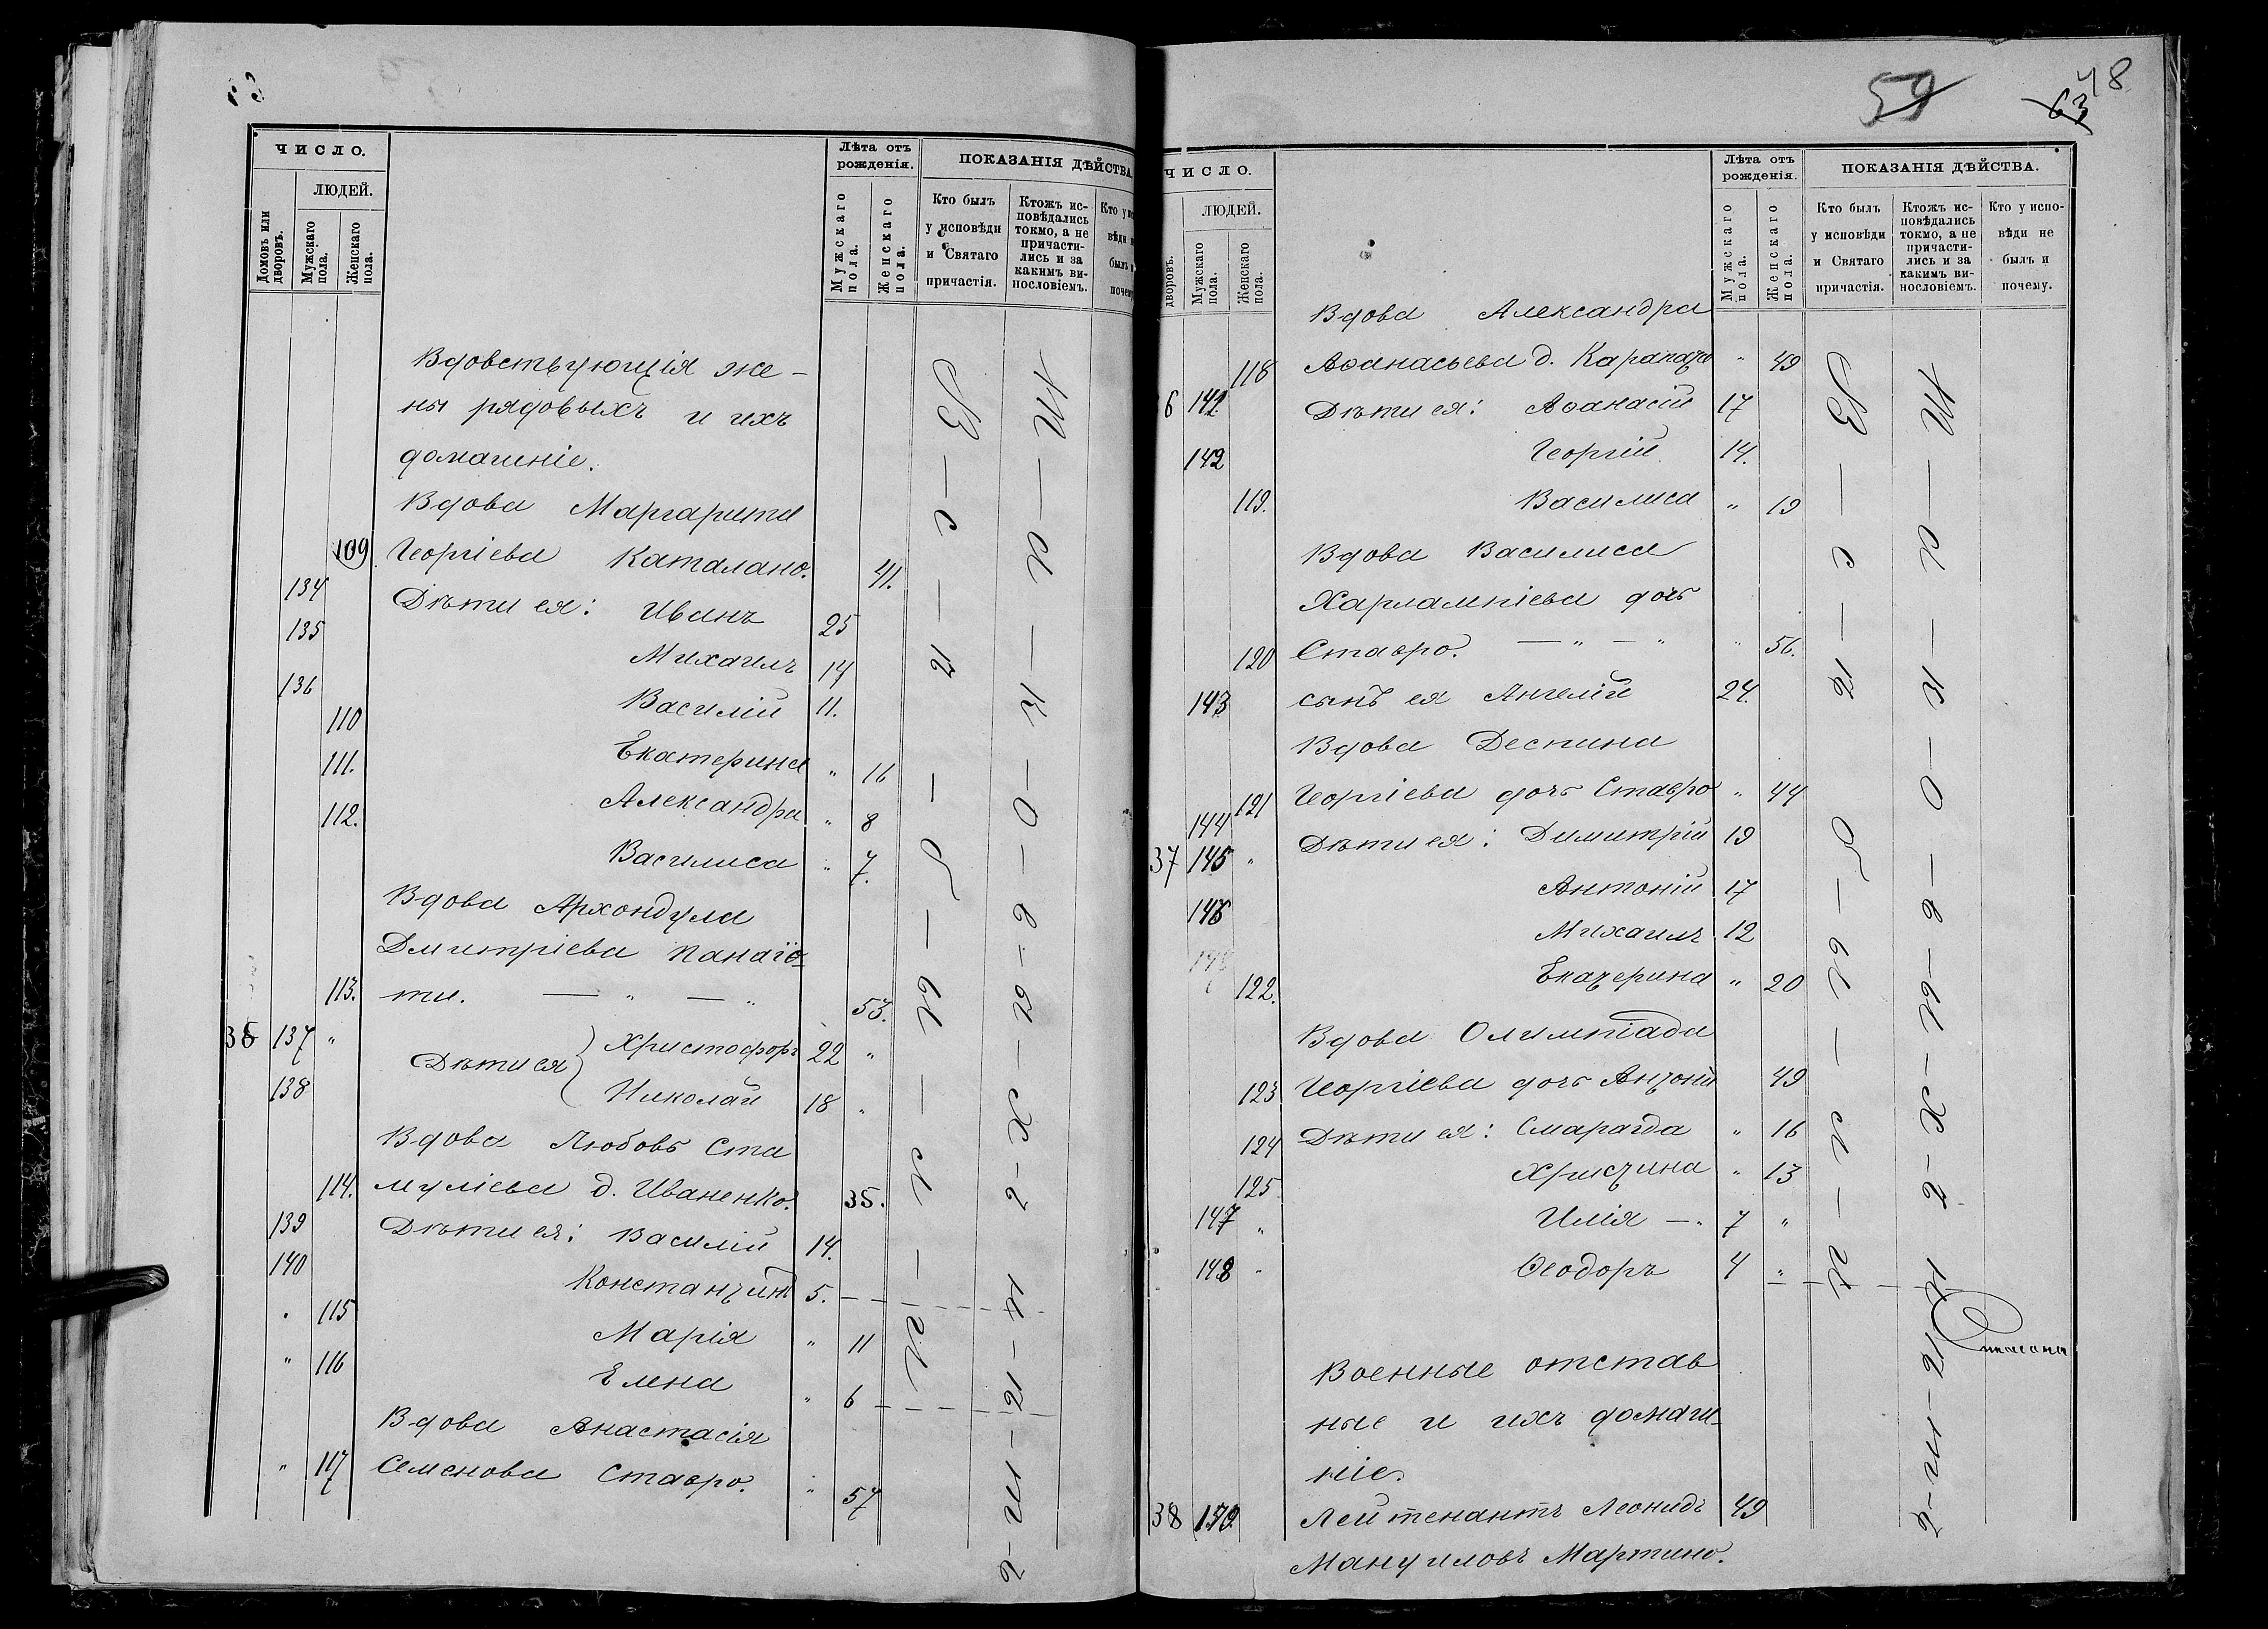 ЧИСЛО.
ЛЮДЕЙ.
Домовъ или дворовъ.
Мужскаго пола.
Женскаго пола.
Лѣта отъ рожденія.
Мужскаго пола.
Женскаго пола.
ПОКАЗАНІЯ ДѢЙСТВА
Кто былъ у исповѣди и Святаго причастія.
Ктожъ исповѣдались токмо, а не причастились и за какимъ винословіемъ.
Вдовствующія же-
ны рядовыхъ и ихъ
домашніе.
Вдова Маргарита
109 Георгіева Каталано. 41.
134 Дѣти ея: Иванъ 25
135 Михаилъ 14
136 Василій 11.
110 Екатерина " 16
111. Александра " 8
112. Василиса " 7.
Вдова Архондула
Дмитріева Панаіо-
113. ти. — " — " 53.
36 137 " Дѣти ея Христофоръ 22 "
138 Николай 18 "
Вдова Любовь Ста
114. муліева д. Иваненко. 35.
139 Дѣти ея: Василій 14.
140 Константинъ 5.
115 Марія " 11
" 116 Елена " 6
Вдова Анастасія
" 117 Семенова Ставро. " 57
59 63 48
ЧИСЛО.
ЛЮДЕЙ.
дворовъ.
Мужскаго пола.
Женскаго пола.
Лѣта отъ рожденія.
Мужскаго пола.
Женскаго пола.
ПОКАЗАНІЯ ДѢЙСТВА.
Кто былъ у исповѣди и Святаго причастія.
Ктожъ исповѣдались токмо, а не причастились и за какимъ винословіемъ.
Кто у исповѣди не былъ и почему.
Вдова Александра
118 Аѳанасьева д. " 49
6 Дѣти ея: Аѳанасій 17
142 Георгій 14.
119. Василиса " 19
Вдова Василиса
Харлампіева дочь
120 Ставро. — " — " " 56.
143 сынъ ея Ангелій 24.
Вдова Деспина
121 Георгіева дочь Ставро " 44
144 Дѣти ея: Димитрій 19
37 145 " Антоній 17
146 Михаилъ 12
122. Екатерина " 20
Вдова Олимпіада
123 Георгіева дочь Антони 49
124 Дѣти ея: Смарагда " 16
125 Христина " 13
147 " Илія — " 7 "
148 " Ѳеодоръ 4 "
Военные отстав
ные и ихъ домаш-
ніе.
38 Лейтенантъ Леонидъ 49
Мануиловъ Мартино.